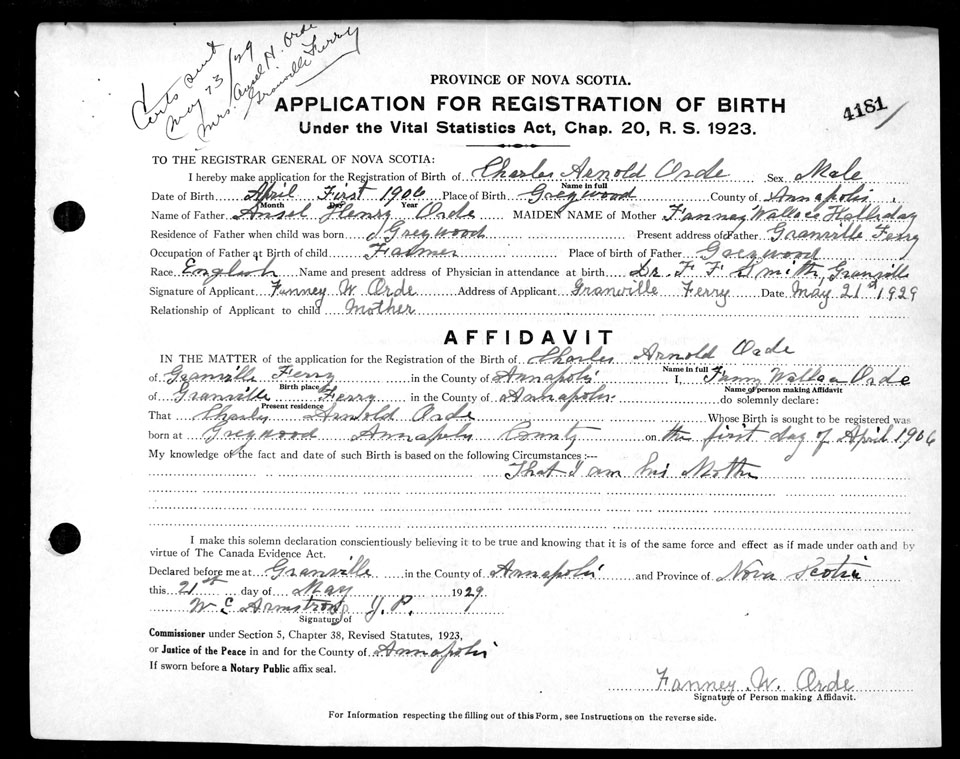 Certs sent
May 23/29
Mrs. Ansel H. Orde
Granville Ferry
PROVINCE OF NOVA SCOTIA.
APPLICATION FOR REGISTRATION OF BIRTH
4181
Under the Vital Statistics Act, Chap. 20, R. S. 1923.
TO THE REGISTRAR GENERAL OF NOVA SCOTIA:
I hereby make application for the Registration of Birth of Charles Arnold Orde Sex Male
Name in full
Date of Birth April First 1906 Place of Birth Greywood County of Annapolis
Month Day Year
Name of Father Ansel Henry Orde MAIDEN NAME of Mother Fanney Wallace Halliday
Residence of Father when child was born Greywood Present address of Father Granville Ferry
Occupation of Father at Birth of child Farmer Place of birth of Father Greywood
Race English Name and present address of Physician in attendance at birth Dr. F. F. Smith, Granville
Signature of Applicant Fanney W. Orde Address of Applicant Granville Ferry Date May 21st 1929
Relationship of Applicant to child Mother
AFFIDAVIT
IN THE MATTER of the application for the Registration of the Birth of Charles Arnold Orde
Name in full
of Granville Ferry in the County of Annapolis I, Fanny Wallace Orde
Birth place Name of Person making Affidavit
of Granville Ferry in the County of Annapolis do solemnly declare:
Present residence
That Charles Arnold Orde Whose Birth is sought to be registered was
born at Greywood Annapolis County on the first day of April 1906
My knowledge of the fact and date of such Birth is based on the following Circumstances:—
That I am his Mother
I make this solemn declaration conscientiously believing it to be true and knowing that it is of the same force and effect as if made under oath and by
virtue of The Canada Evidence Act.
Declared before me at Granville in the County of Annapolis and Province of Nova Scotia
this 21st day of May 1929
W C Armstrong J. P.
Signature of
Commissioner under Section 5, Chapter 38, Revised Statutes, 1923,
or Justice of the Peace in and for the County of Annapolis
If sworn before a Notary Public affix seal.
Fanney W. Orde
Signature of Person making Affidavit.
For Information respecting the filling out of this Form, see Instructions on the reverse side.